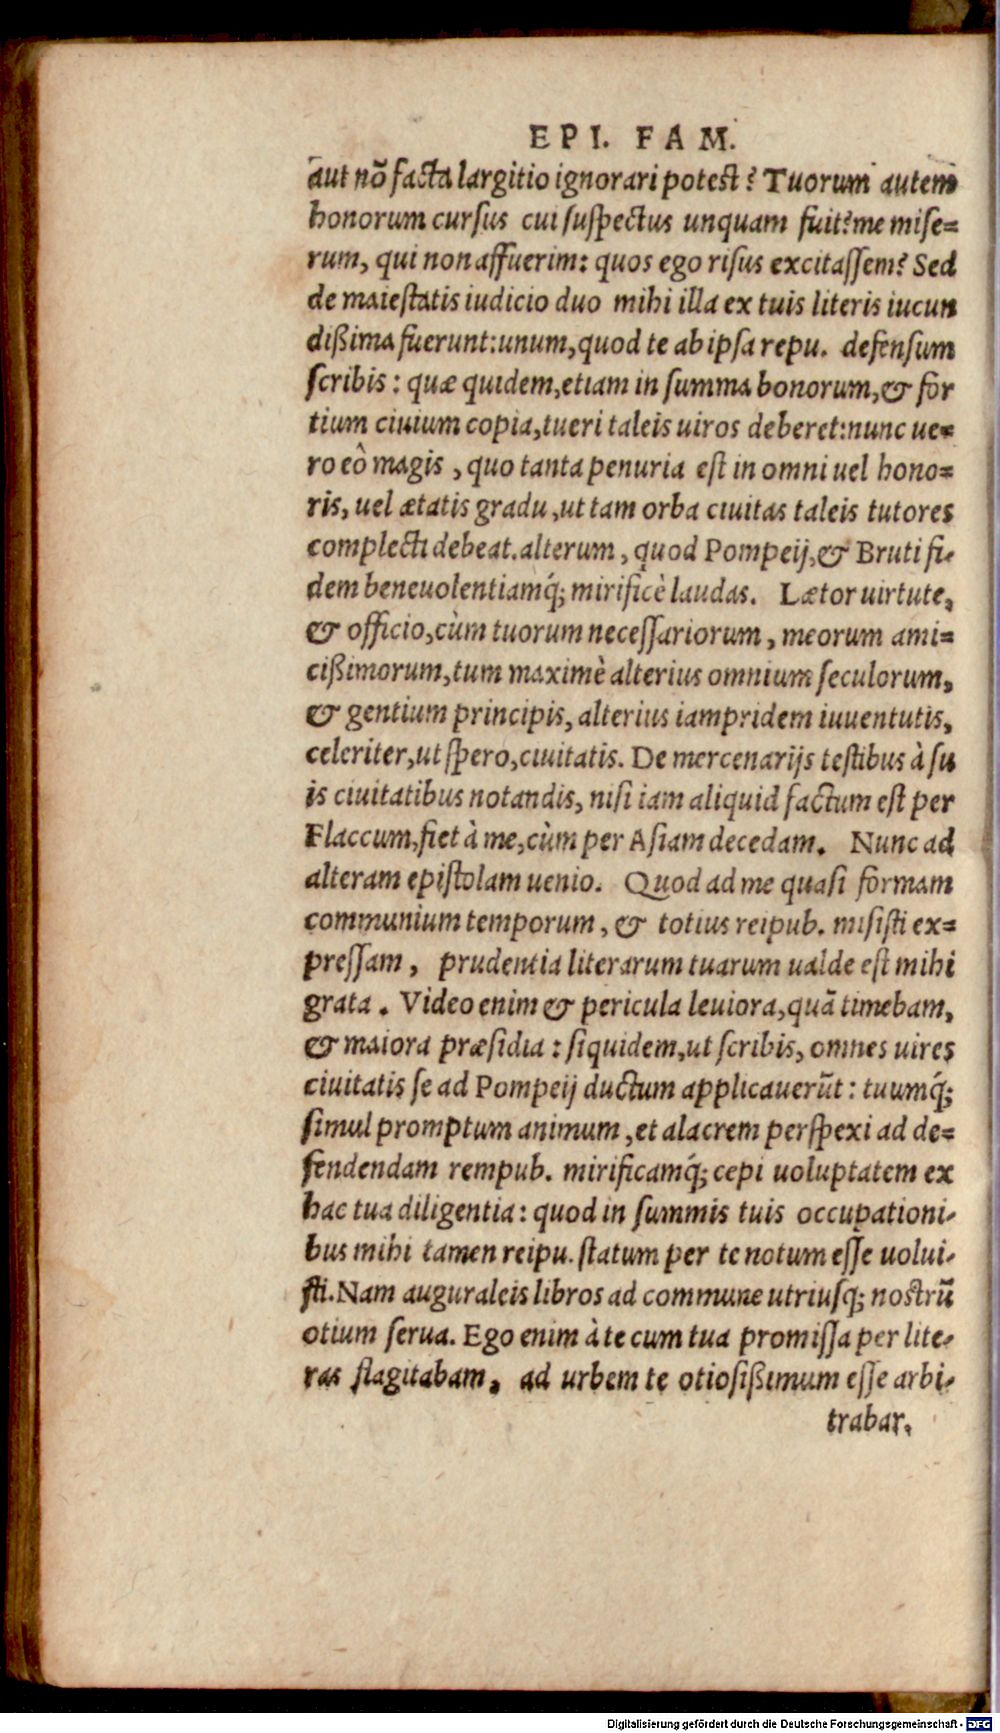 EPI. FAM.
aut nõ facta largitio ignorari potest? Tuorum autem
honorum cursus cui suspectus unquam fuit? me mise=
rum, qui non affuerim: quos ego risus excitassem? Sed
de maiestatis iudicio duo mihi illa ex tuis literis iucun
dißima fuerunt: unum, quod te ab ipsa repu. defensum
scribis: quæ quidem, etiam in summa bonorum, & for
tium ciuium copia, tueri taleis uiros deberet: nunc ue=
ro eò magis, quo tanta penuria est in omni uel hono=
ris, uel ætatis gradu, ut tam orba ciuitas taleis tutores
complecti debeat. alterum, quod Pompeij, & Bruti fi-
dem beneuolentiamq́; mirificè laudas. Lætor uirtute,
& officio, cùm tuorum necessariorum, meorum ami=
cißimorum, tum maximè alterius omnium seculorum,
& gentium principis, alterius iampridem iuuentutis,
celeriter, ut spero, ciuitatis. De mercenarijs testibus à su
is ciuitatibus notandis, nisi iam aliquid factum est per
Flaccum, fiet à me, cùm per Asiam decedam. Nunc ad
alteram epistolam uenio. Quod ad me quasi formam
communium temporum, & totius reipub. misisti ex=
pressam, prudentia literarum tuarum ualde est mihi
grata. Video enim & pericula leuiora, quã timebam,
& maiora præsidia: siquidem, ut scribis, omnes uires
ciuitatis se ad Pompeij ductum applicauerũt: tuumq́;
simul promptum animum, et alacrem perspexi ad de=
fendendam rempub. mirificamq́; cepi uoluptatem ex
hac tua diligentia: quod in summis tuis occupationi-
bus mihi tamen reipu. statum per te notum esse uolui-
sti. Nam auguraleis libros ad commune utriusq; nostrũ
otium serua. Ego enim à te cum tua promissa per lite-
ras flagitabam, ad urbem te otiosißimum esse arbi-
trabar.
Digitalisierung gefördert durch die Deutsche Forschungsgemeinschaft - DFG